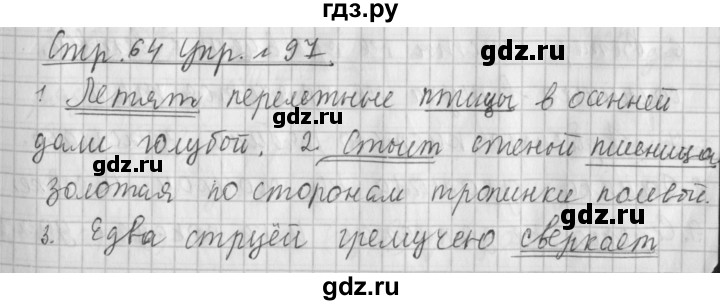 гдз.ру
Стр. 64 упр. № 97.
gdz.ru gdz.ru
1. Летят перелетные птицы в осенней
дали голубой. 2. Стоит стеной пшеница
gdz.ru
золотая по сторонам тропинки полевой.
gdz.ru
3. Едва струёй гремучею сверкает
gdz.ru